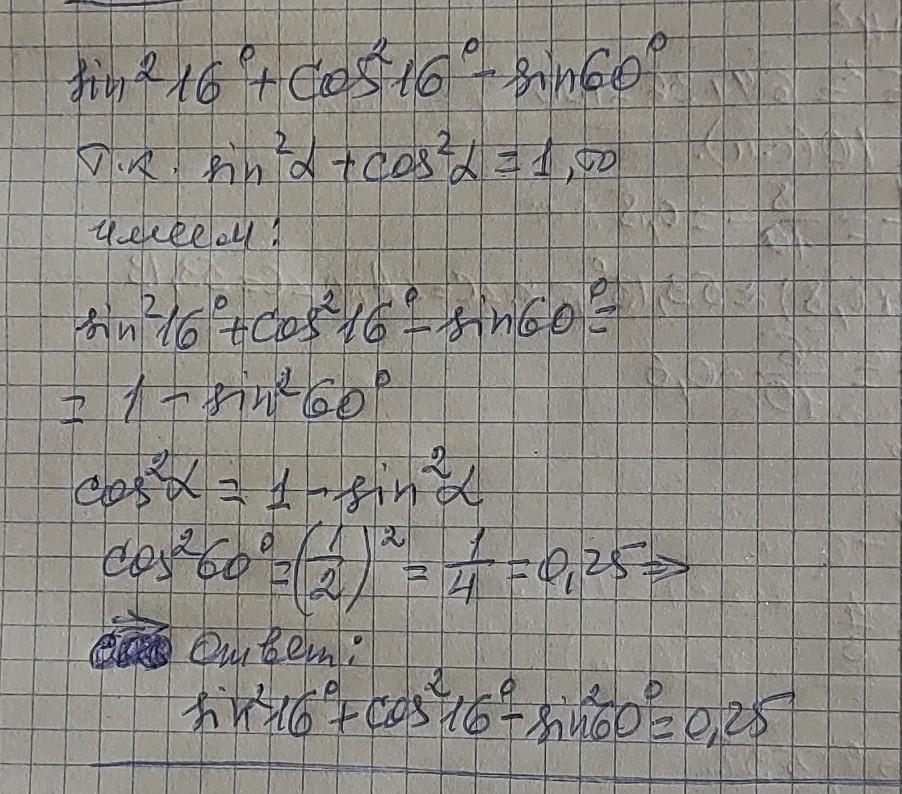 sin² 16° + cos² 16° - sin 60°
Т.к. sin²α + cos²α = 1, то
имеем:
sin² 16° + cos² 16° - sin 60° =
= 1 - sin² 60°
cos²α = 1 - sin²α
cos² 60° = (1/2)² = 1/4 = 0,25 ⇒
⇒ Ответ:
sin² 16° + cos² 16° - sin² 60° = 0,25